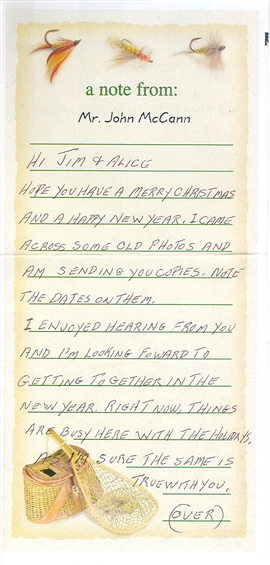 a note from:
Mr. John McCann
HI JIM & ALICE
HOPE YOU HAVE A MERRY CHRISTMAS
AND A HAPPY NEW YEAR. I CAME
ACROSS SOME OLD PHOTOS AND
AM SENDING YOU COPIES. NOTE
THE DATES ON THEM.
I ENJOYED HEARING FROM YOU
AND I'M LOOKING FOWARD TO
GETTING TOGETHER IN THE
NEW YEAR. RIGHT NOW, THINGS
ARE BUSY HERE WITH THE HOLIDAYS,
AS I'M SURE THE SAME IS
TRUE WITH YOU,
(OVER)